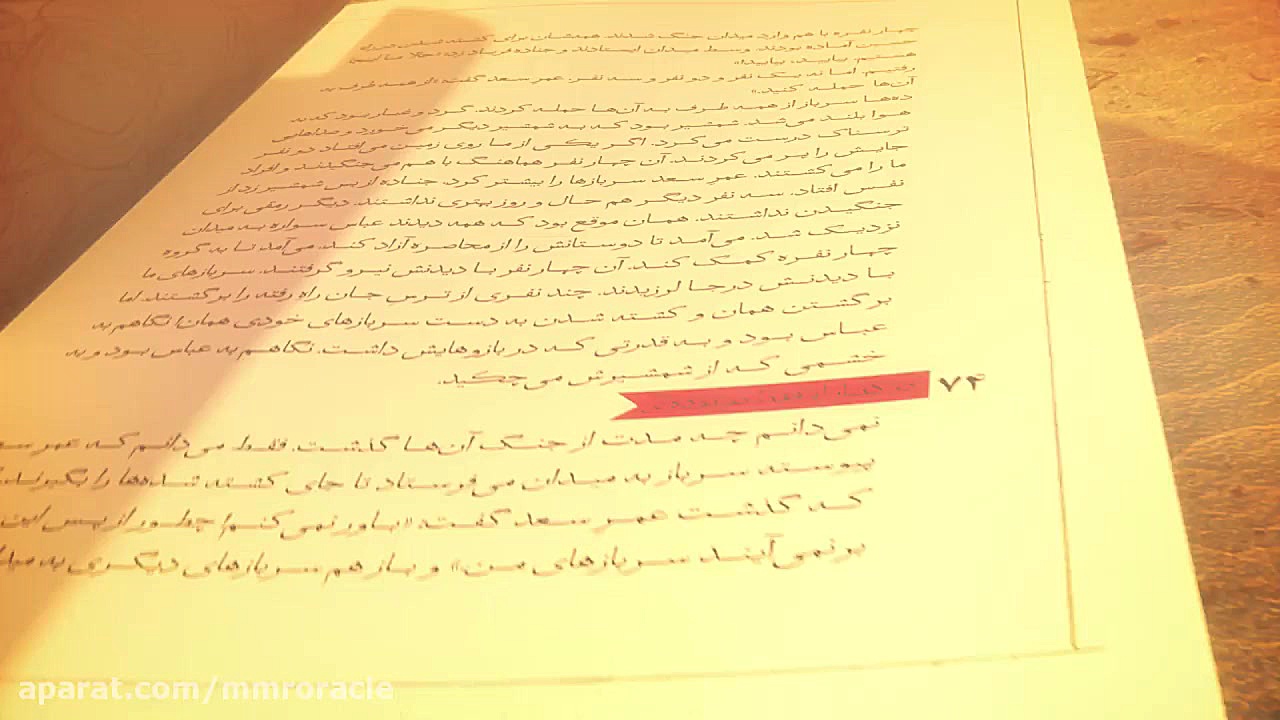 چهار نفره با هم وارد میدان جنگ شدند. همه‌شان برای کشته شدن در راه
حسین آماده بودند. وسط میدان ایستادند و جناده فریاد زد: «حالا ما این‌جا
هستیم. بیایید. بیایید!»
رفتیم. اما نه یک نفر و دو نفر و سه نفر. عمر سعد گفت: «از همه طرف به
آن‌ها حمله کنید.»
ده‌ها سرباز از همه طرف به آن‌ها حمله کردند. گرد و غبار بود که به
هوا بلند می‌شد. شمشیر بود که به شمشیر دیگر می‌خورد و صداهایی
ترسناک درست می‌کرد. اگر یکی از ما روی زمین می‌افتاد دو نفر
جایش را پر می‌کردند. آن چهار نفر هماهنگ با هم می‌جنگیدند و افراد
ما را می‌کشتند. عمر سعد سربازها را بیشتر کرد. جناده از بس شمشیر زد از
نفس افتاد. سه نفر دیگر هم حال و روز بهتری نداشتند. دیگر رمقی برای
جنگیدن نداشتند. همان موقع بود که همه دیدند عباس سواره به میدان
نزدیک شد. می‌آمد تا دوستانش را از محاصره آزاد کند. می‌آمد تا به گروه
چهار نفره کمک کند. آن چهار نفر با دیدنش نیرو گرفتند. سربازهای ما
با دیدنش درجا لرزیدند. چند نفری از ترس جان راه رفته را برگشتند. اما
برگشتن همان و کشته شدن به دست سربازهای خودی همان! نگاهم به
عباس بود و به قدرتی که در بازوهایش داشت. نگاهم به عباس بود و به
خشمی که از شمشیرش می‌چکید.
۷۴
نمی‌دانم چه مدت از جنگ آن‌ها گذشت. فقط می‌دانم که عمر
پیوسته سرباز به میدان می‌فرستاد تا جای کشته شده‌ها را بگیرند
که گذشت عمر سعد گفت: «باور نمی‌کنم! چطور از پس این
برنمی‌آیند سربازهای من» و باز هم سربازهای دیگری به
aparat.com/mmroracle